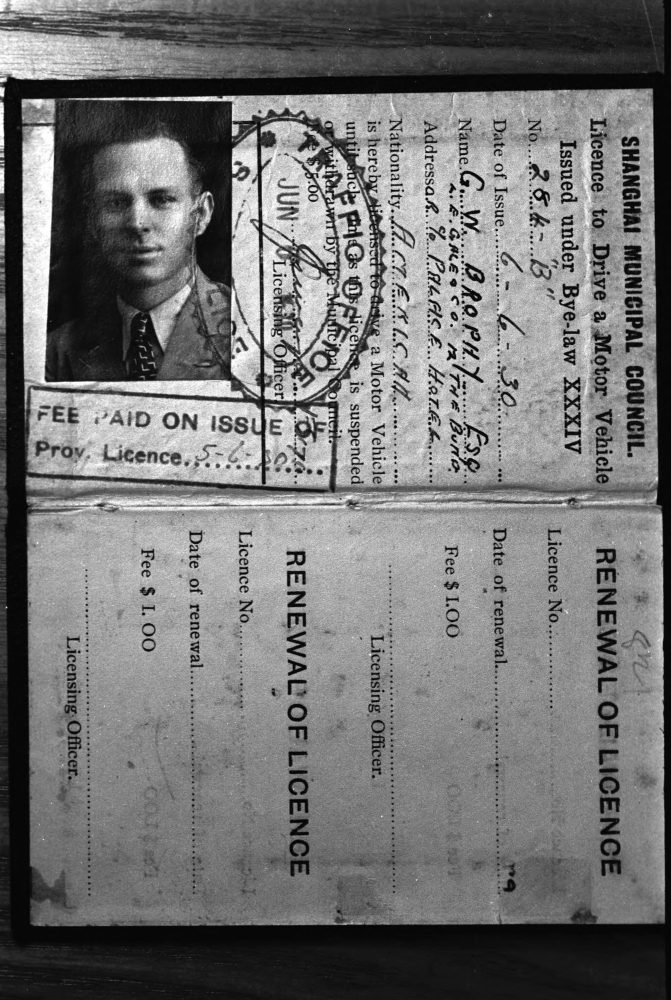 SHANGHAI MUNICIPAL COUNCIL.
Licence to Drive a Motor Vehicle
Issued under Bye-law XXXIV
No. 284-"B"
Date of Issue 6-6-30
Name G. W. BROPHY Esq
& Co. 12 THE BUND
Address PALACE HOTEL
Nationality AMERICAN
is hereby licensed to drive a Motor Vehicle
until such time as this licence is suspended
or withdrawn by the Municipal Council.
Fee $5.00
Licensing Officer
TRAFFIC OFFICE
JUN
FEE PAID ON ISSUE OF
Prov. Licence 5-6-30
RENEWAL OF LICENCE
Licence No.
Date of renewal
Fee $ 1.00
Licensing Officer.
RENEWAL OF LICENCE
Licence No.
Date of renewal
Fee $ 1.00
Licensing Officer.